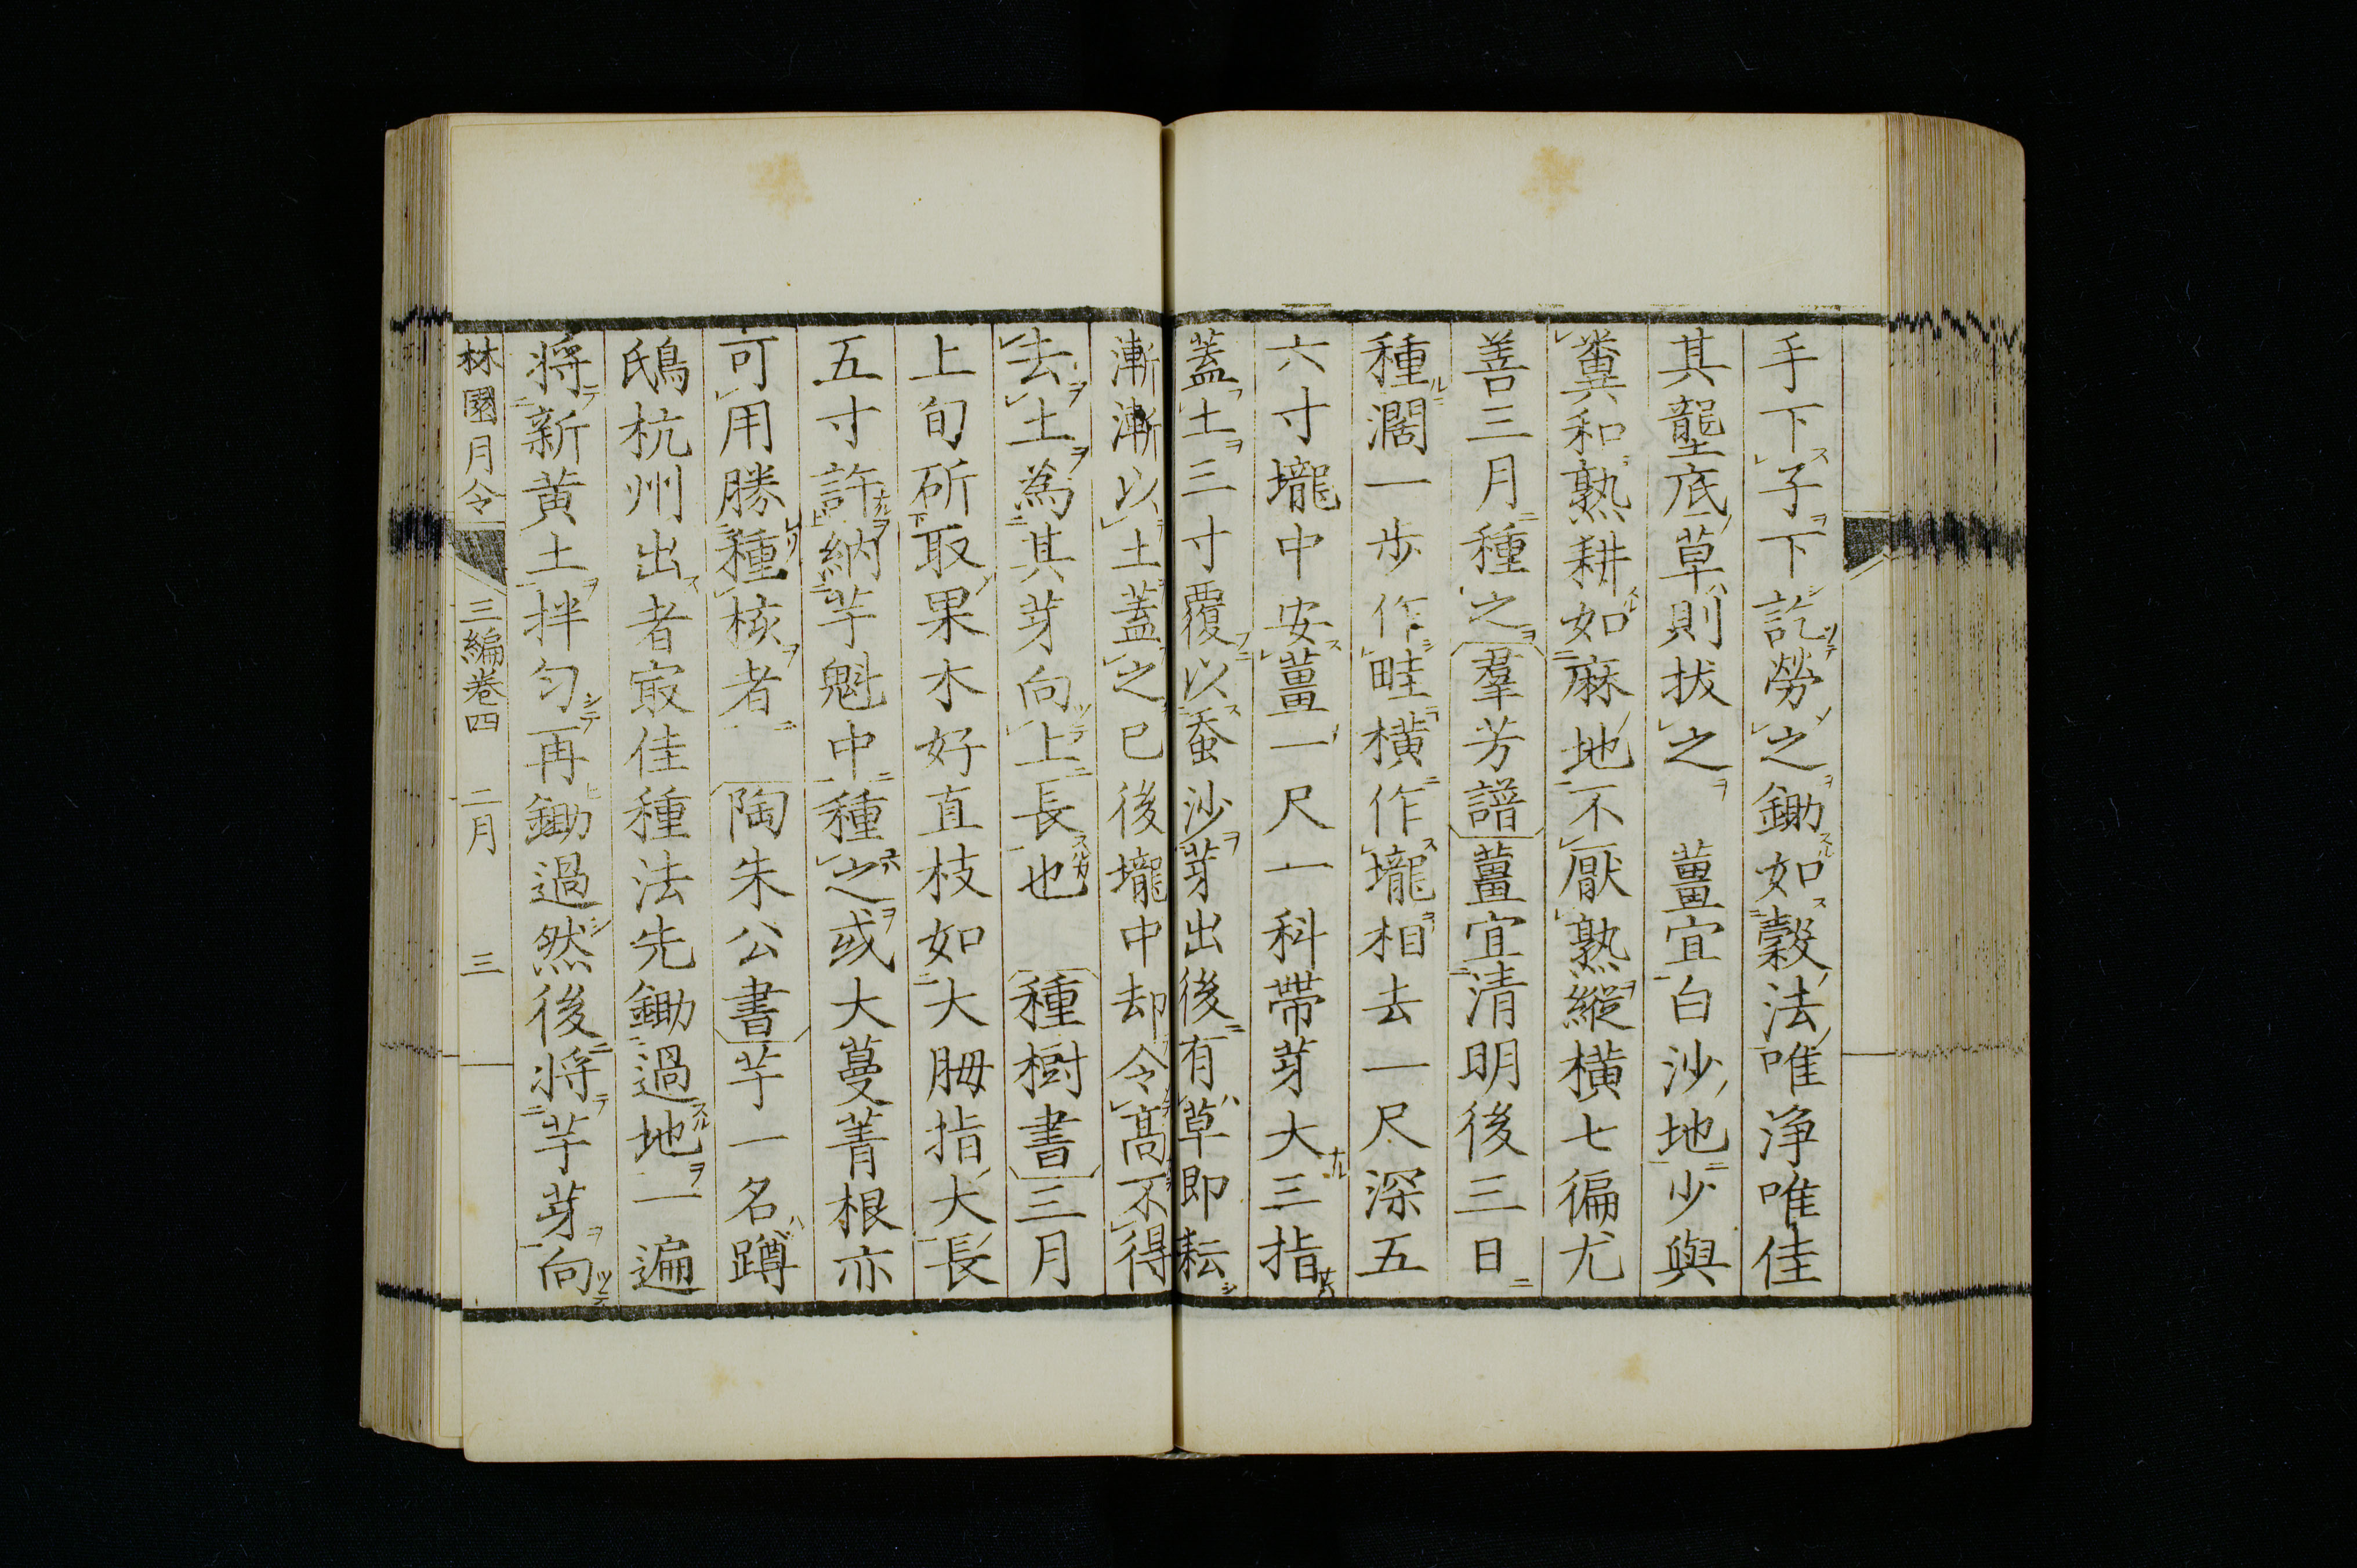 手下子下訖勞之鋤如穀法唯浄唯佳
其壟底草則拔之　薑宜白沙地少與
糞和熟耕如麻地不厭熟縱横七徧尤
善三月種之〔羣芳譜〕薑宜清明後三日
種濶一歩作畦横作壠相去一尺深五
六寸壠中安薑一尺一科帶芽大三指
蓋土三寸覆以蚕沙芽出後有草即耘
漸漸以土蓋之已後壠中却令髙不得
去土為其芽向上長也　〔種樹書〕三月
上旬斫取果木好直枝如大𦚾指大長
五寸許納芋魁中種之或大蔓菁根亦
可用勝種核者　〔陶朱公書〕芋一名蹲
鴟杭州出者㝡佳種法先鋤過地一遍
将新黄土拌匀再鋤過然後将芋芽向
林園月令　三編巻四　二月　三